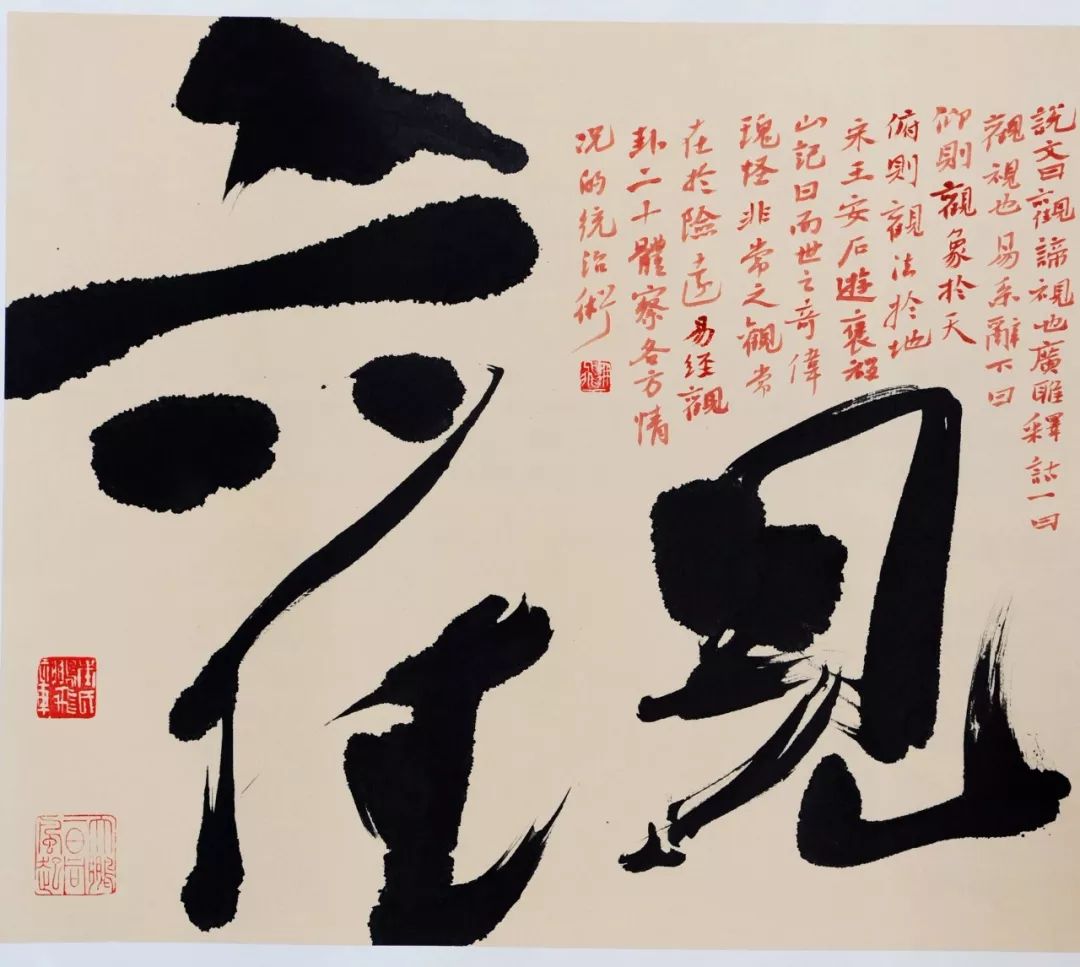 觀
說文曰觀諦視也廣雅釋詁一曰
觀視也易系辭下曰
仰則觀象於天
俯則觀法於地
宋王安石遊褒禪
山記曰而世之奇偉
瑰怪非常之觀常
在於險遠易經觀
卦二十體察各方情
況的統治術
大鵬一日同風起